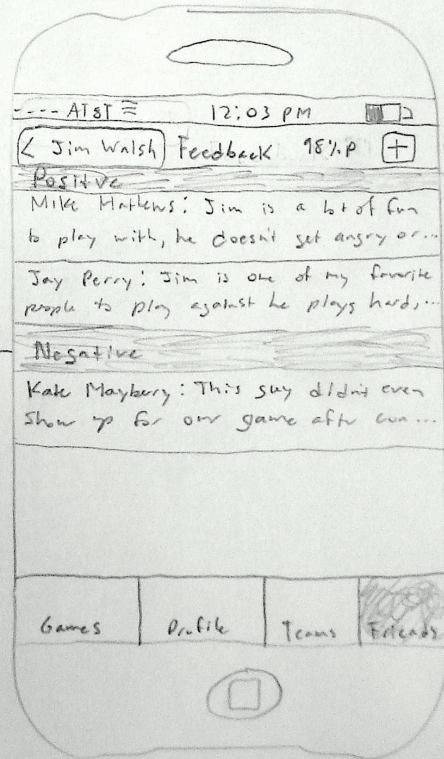 ---- AT&T 12:03 PM
< Jim Walsh Feedback 98%P +
Positve
Mike Mathews: Jim is a lot of fun
to play with, he doesn't get angry or...
Jay Perry: Jim is one of my favorite
people to play against he plays hard,...
Negative
Kate Mayberry: This guy didn't even
show up for our game after con...
Games Profile Teams Friends